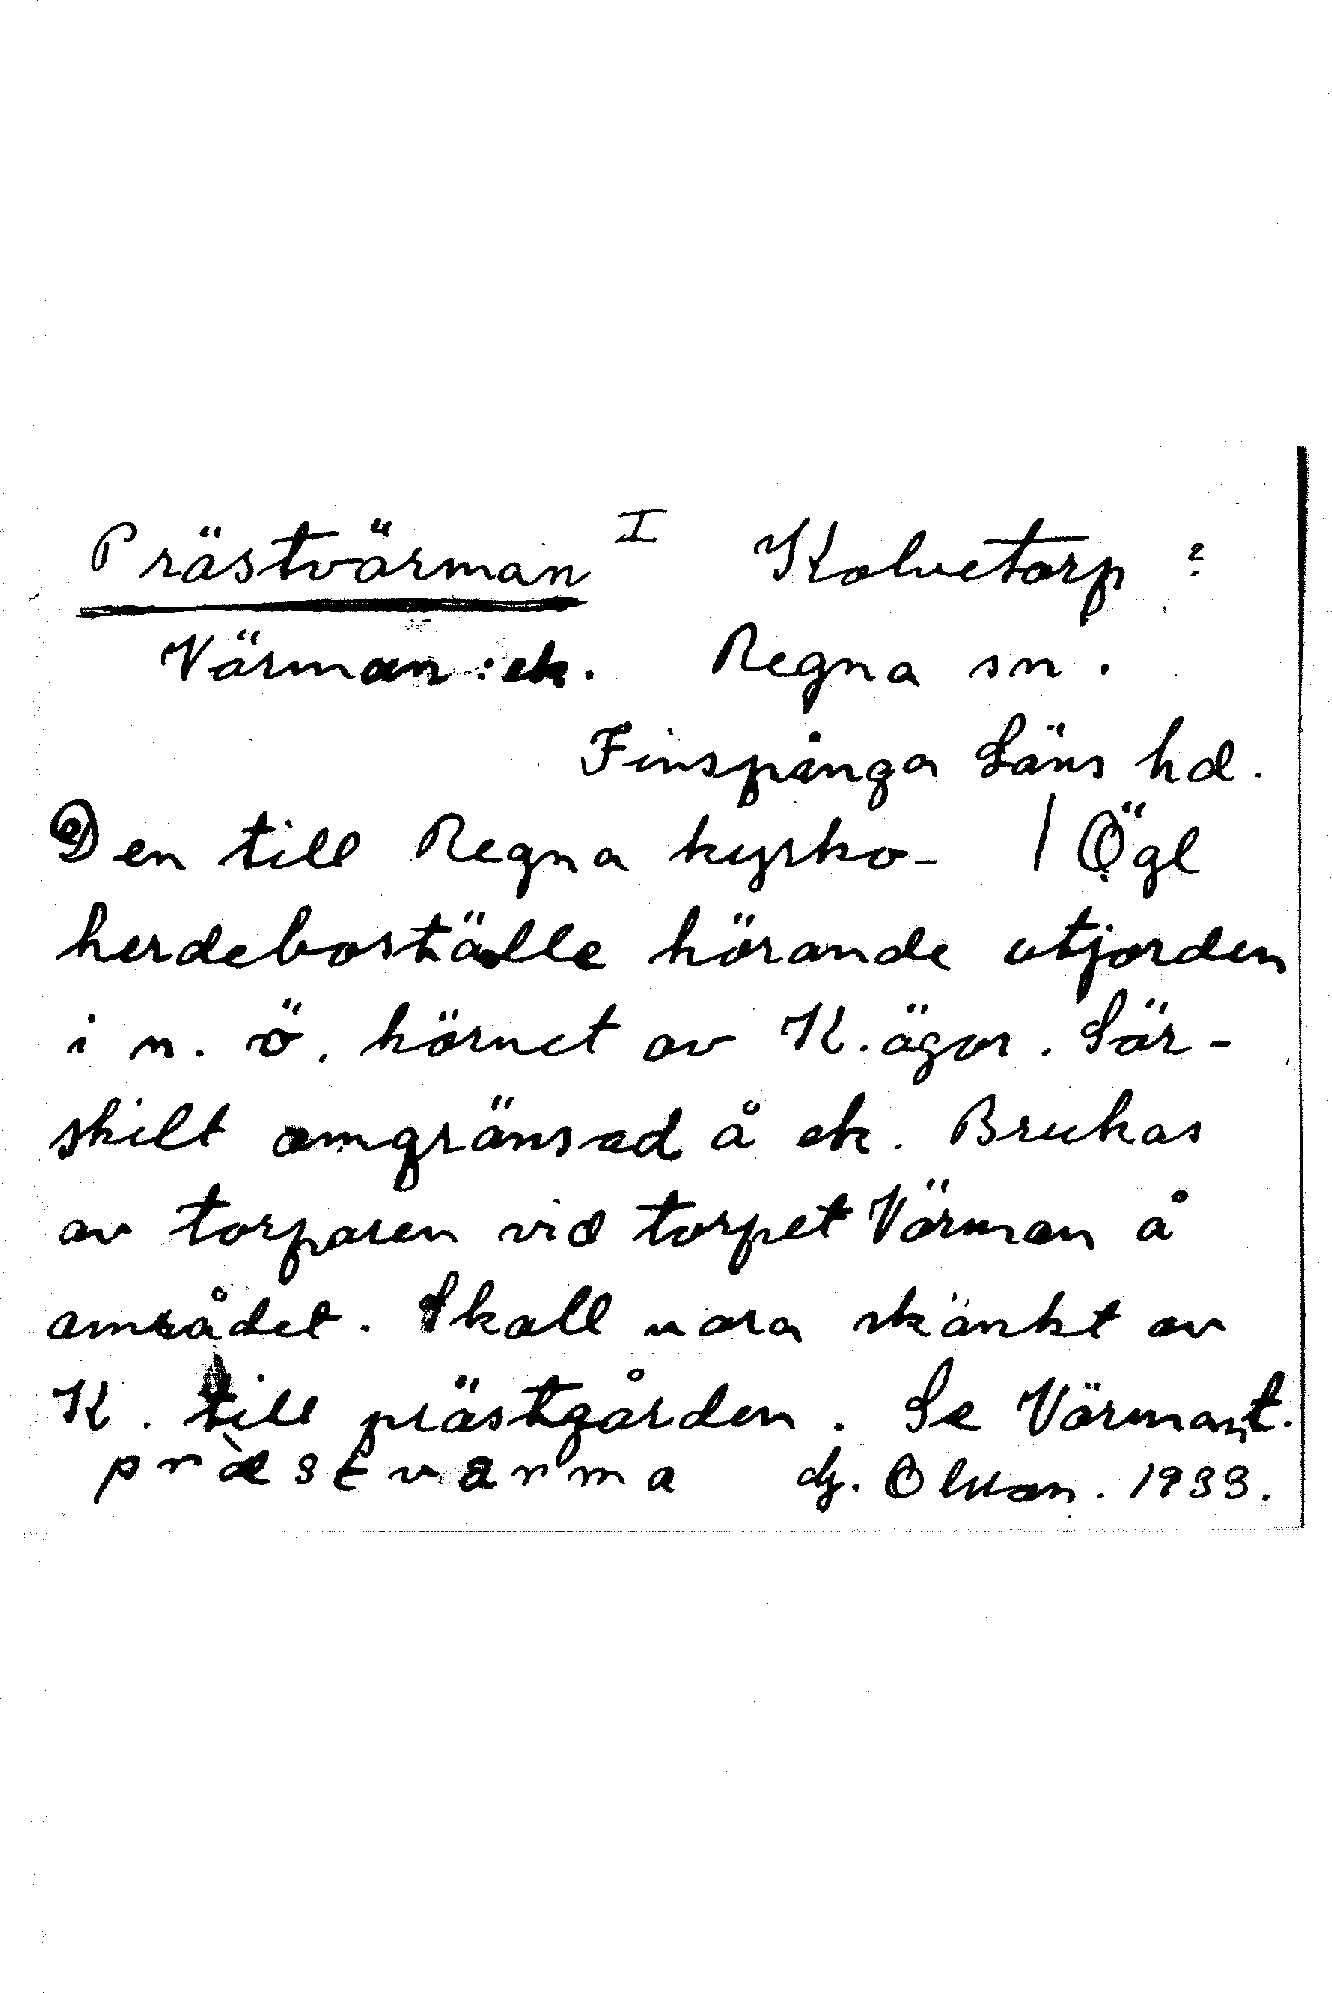 Prästvärman I Kolvetorp ?
Värman : ek. Regna sn.
Finspånga Läns hd.
Den till Regna kyrko- / Ögl
herdeboställe hörande utjorden
i n. ö. hörnet av K. ägor. Sär-
skilt omgränsad å ek. Brukas
av torparen vid torpet Värman å
området. Skall vara skänkt av
K. till prästgården. Se Värmant.
præ̀stvarma dz. Olsson. 1933.